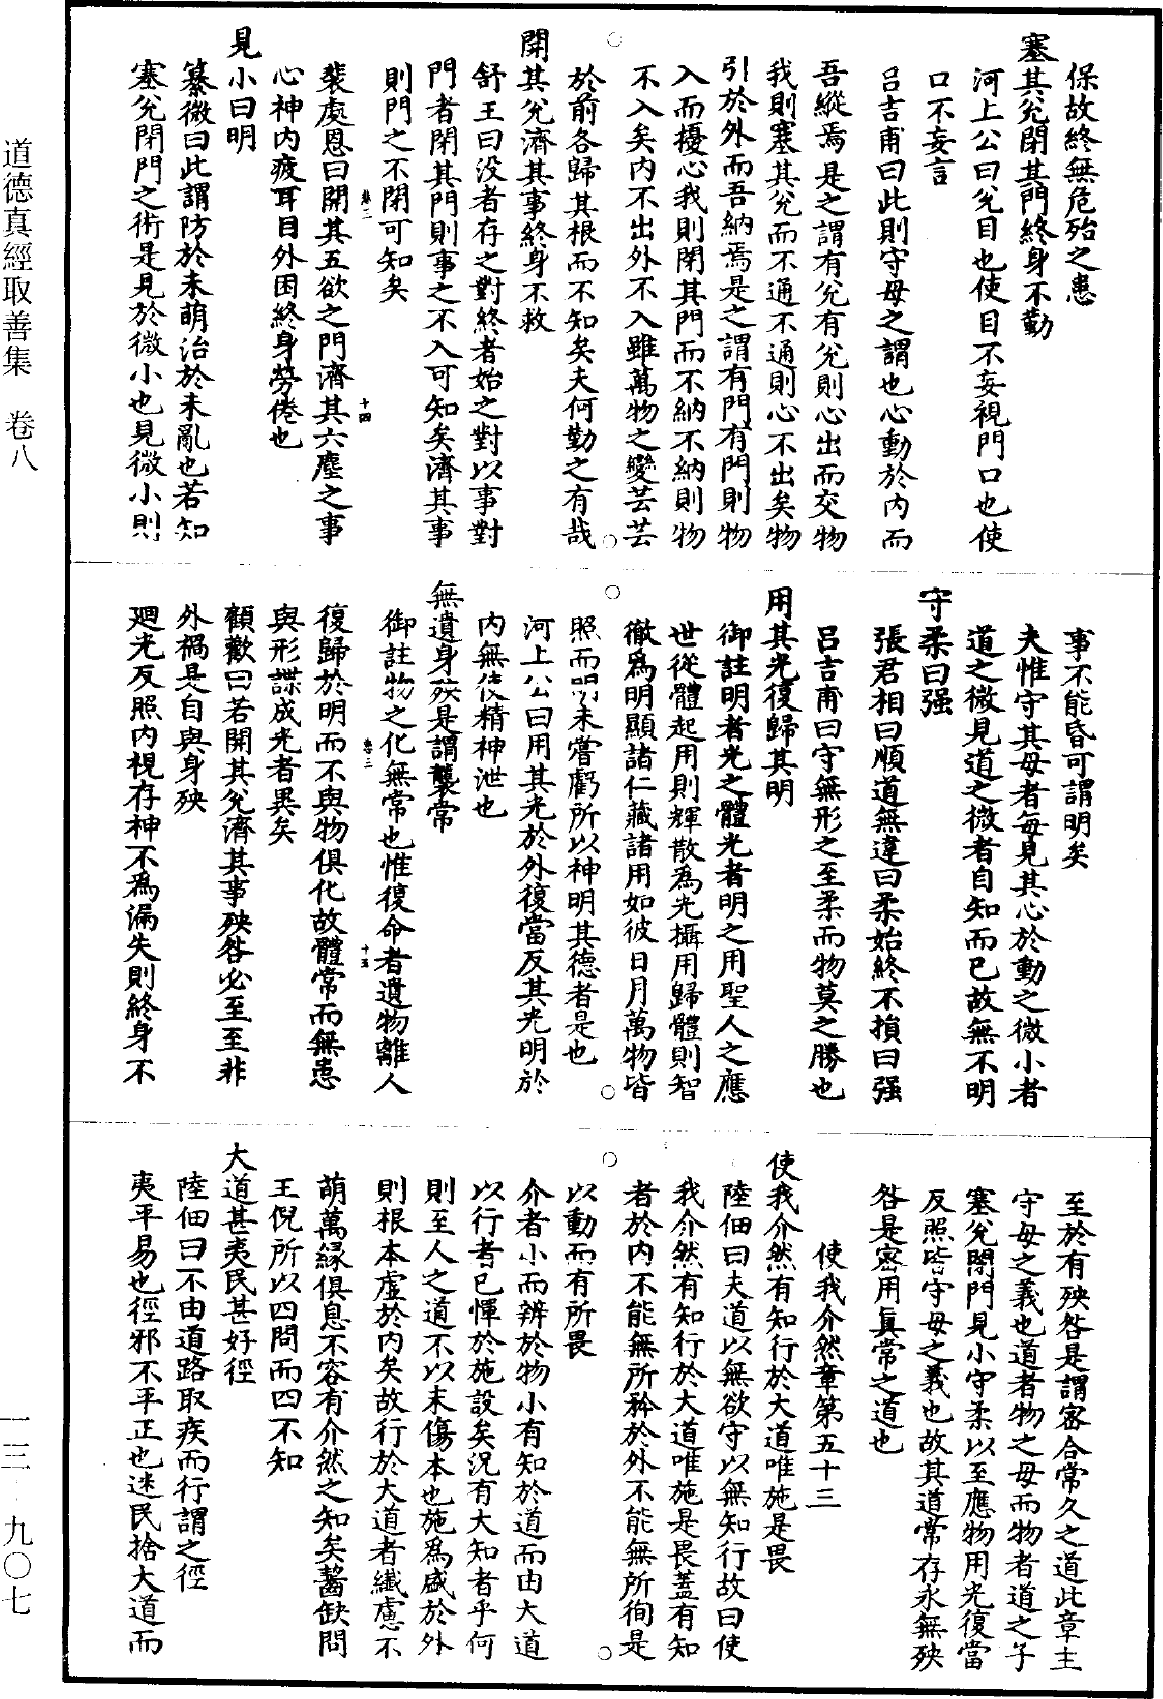 保故終無危殆之患
塞其兌閉其門終身不勤
河上公曰兌目也使目不妄視門口也使
口不妄言
呂吉甫曰此則守母之謂也心動於內而
吾縱焉是之謂有兌有兌則心出而交物
我則塞其兌而不通不通則心不出矣物
引於外而吾納焉是之謂有門有門則物
入而擾心我則閉其門而不納不納則物
不入矣內不出外不入雖萬物之變芸芸
於前各歸其根而不知矣夫何勤之有哉
開其兌濟其事終身不救
舒王曰没者存之對終者始之對以事對
門者閉其門則事之不入可知矣濟其事
則門之不閉可知矣
卷二 十四
裴處恩曰開其五欲之門濟其六塵之事
心神內疲耳目外困終身勞倦也
見小曰明
纂微曰此謂防於未萌治於未亂也若知
塞兌閉門之術是見於微小也見微小則
事不能昏可謂明矣
夫惟守其母者每見其心於動之微小者
道之微見道之微者自知而已故無不明
守柔曰强
張君相曰順道無違曰柔始終不損曰强
呂吉甫曰守無形之至柔而物莫之勝也
用其光復歸其明
御註明者光之體光者明之用聖人之應
世從體起用則輝散為光攝用歸體則智
徹為明顯諸仁藏諸用如彼日月萬物皆
照而明未嘗虧所以神明其德者是也
河上公曰用其光於外復當反其光明於
內無使精神泄也
無遺身殃是謂襲常
御註物之化無常也惟復命者遺物離人
卷二 十五
復歸於明而不與物俱化故體常而無患
與形諜成光者異矣
顧歡曰若開其兌濟其事殃咎必至至非
外禍是自與身殃
廻光反照內視存神不為漏失則終身不
至於有殃咎是謂密合常久之道此章主
守母之義也道者物之母而物者道之子
塞兌閉門見小守柔以至應物用光復當
反照皆守母之義也故其道常存永無殃
咎是密用真常之道也
使我介然章第五十三
使我介然有知行於大道唯施是畏
陸佃曰夫道以無欲守以無知行故曰使
我介然有知行於大道唯施是畏蓋有知
者於內不能無所矜於外不能無所徇是
以動而有所畏
介者小而辨於物小有知於道而由大道
以行者已憚於施設矣況有大知者乎何
則至人之道不以末傷本也施為盛於外
則根本虛於內矣故行於大道者纖慮不
萌萬緣俱息不容有介然之知矣齧缺問
王倪所以四問而四不知
大道甚夷民甚好徑
陸佃曰不由道路取疾而行謂之徑
夷平易也徑邪不平正也迷民捨大道而
道德真經取善集 卷八
一三 九〇七